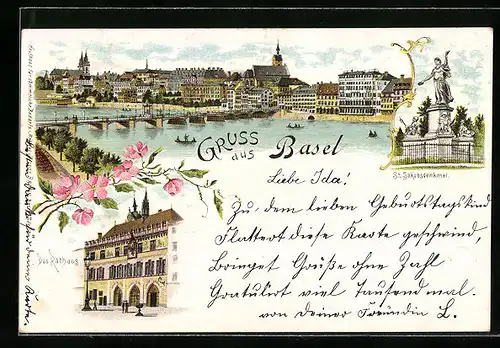 GRUSS
aus
Basel
St. Jakobsdenkmal.
Liebe Ida!
Zu, dem lieben Geburtstagskind
Flattert diese Karte geschwind,
Bringet Grüße ohne Zahl
Gratulirt viel tausend mal.
von deiner Freundin L.
Das Rathaus